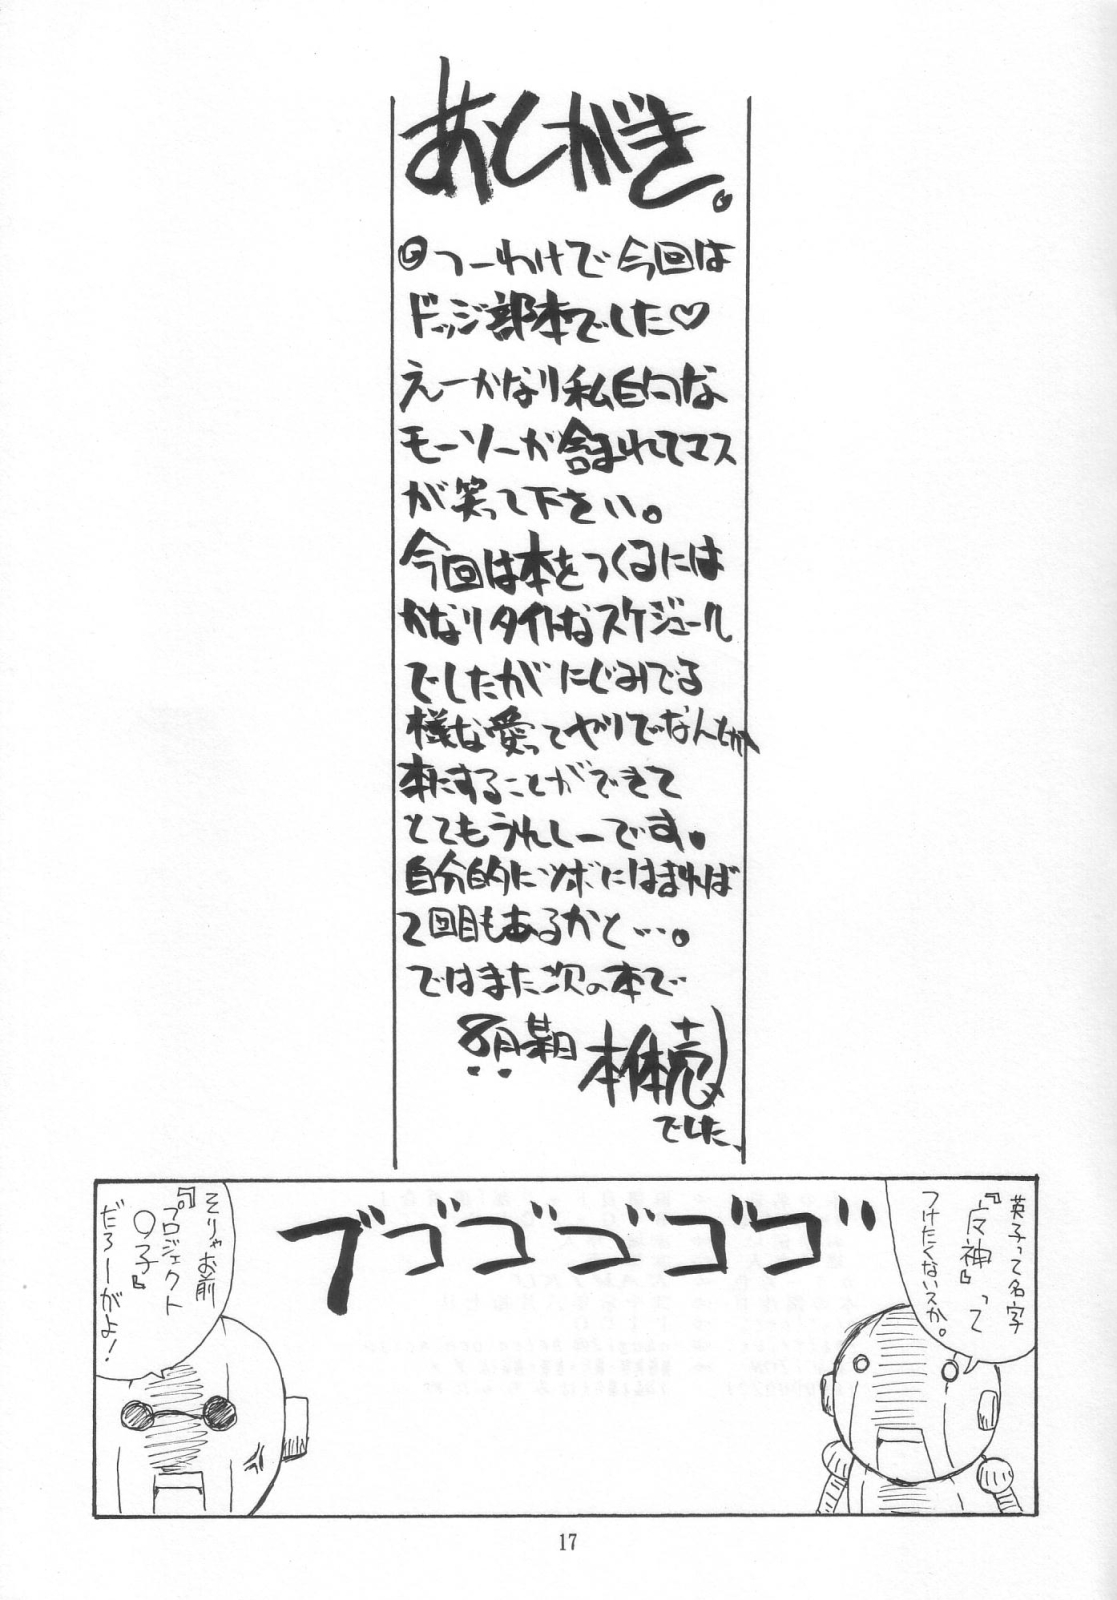 あとがき。
つーわけで今回は
ドッジ部本でした♡
えーかなり私的な
モーソーが含まれてマス
が笑って下さい。
今回は本をつくるには
かなりタイトなスケジュール
でしたがにじみでる
様な愛ってヤツでなんとか
本にすることができて
とてもうれしーです。
自分的にツボにはまれば
2回目もあるかと…。
ではまた次の本で
8月某日 本体売
でした、
英子って名字
って
つけたくないスか。
ゴゴゴゴゴ
そりゃお前
『プロジェクト
○子』
だろーがよ!
17